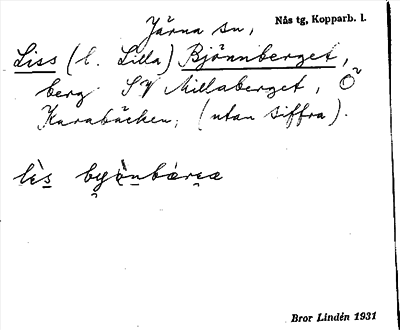 Järna sn,
Nås tg, Kopparb. l.
Liss (l. Lilla) Björnnberget,
berg SV Millaberget, Ö
Karabäcken, (utan siffra).
Bror Lindén 1931